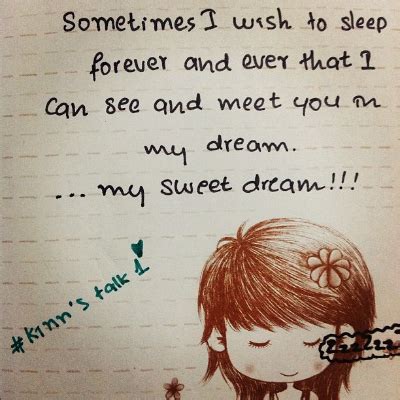 Sometimes I wish to sleep
forever and ever that I
can see and meet you in
my dream.
... my sweet dream!!!
#Kinn's talk 1
zzZzz